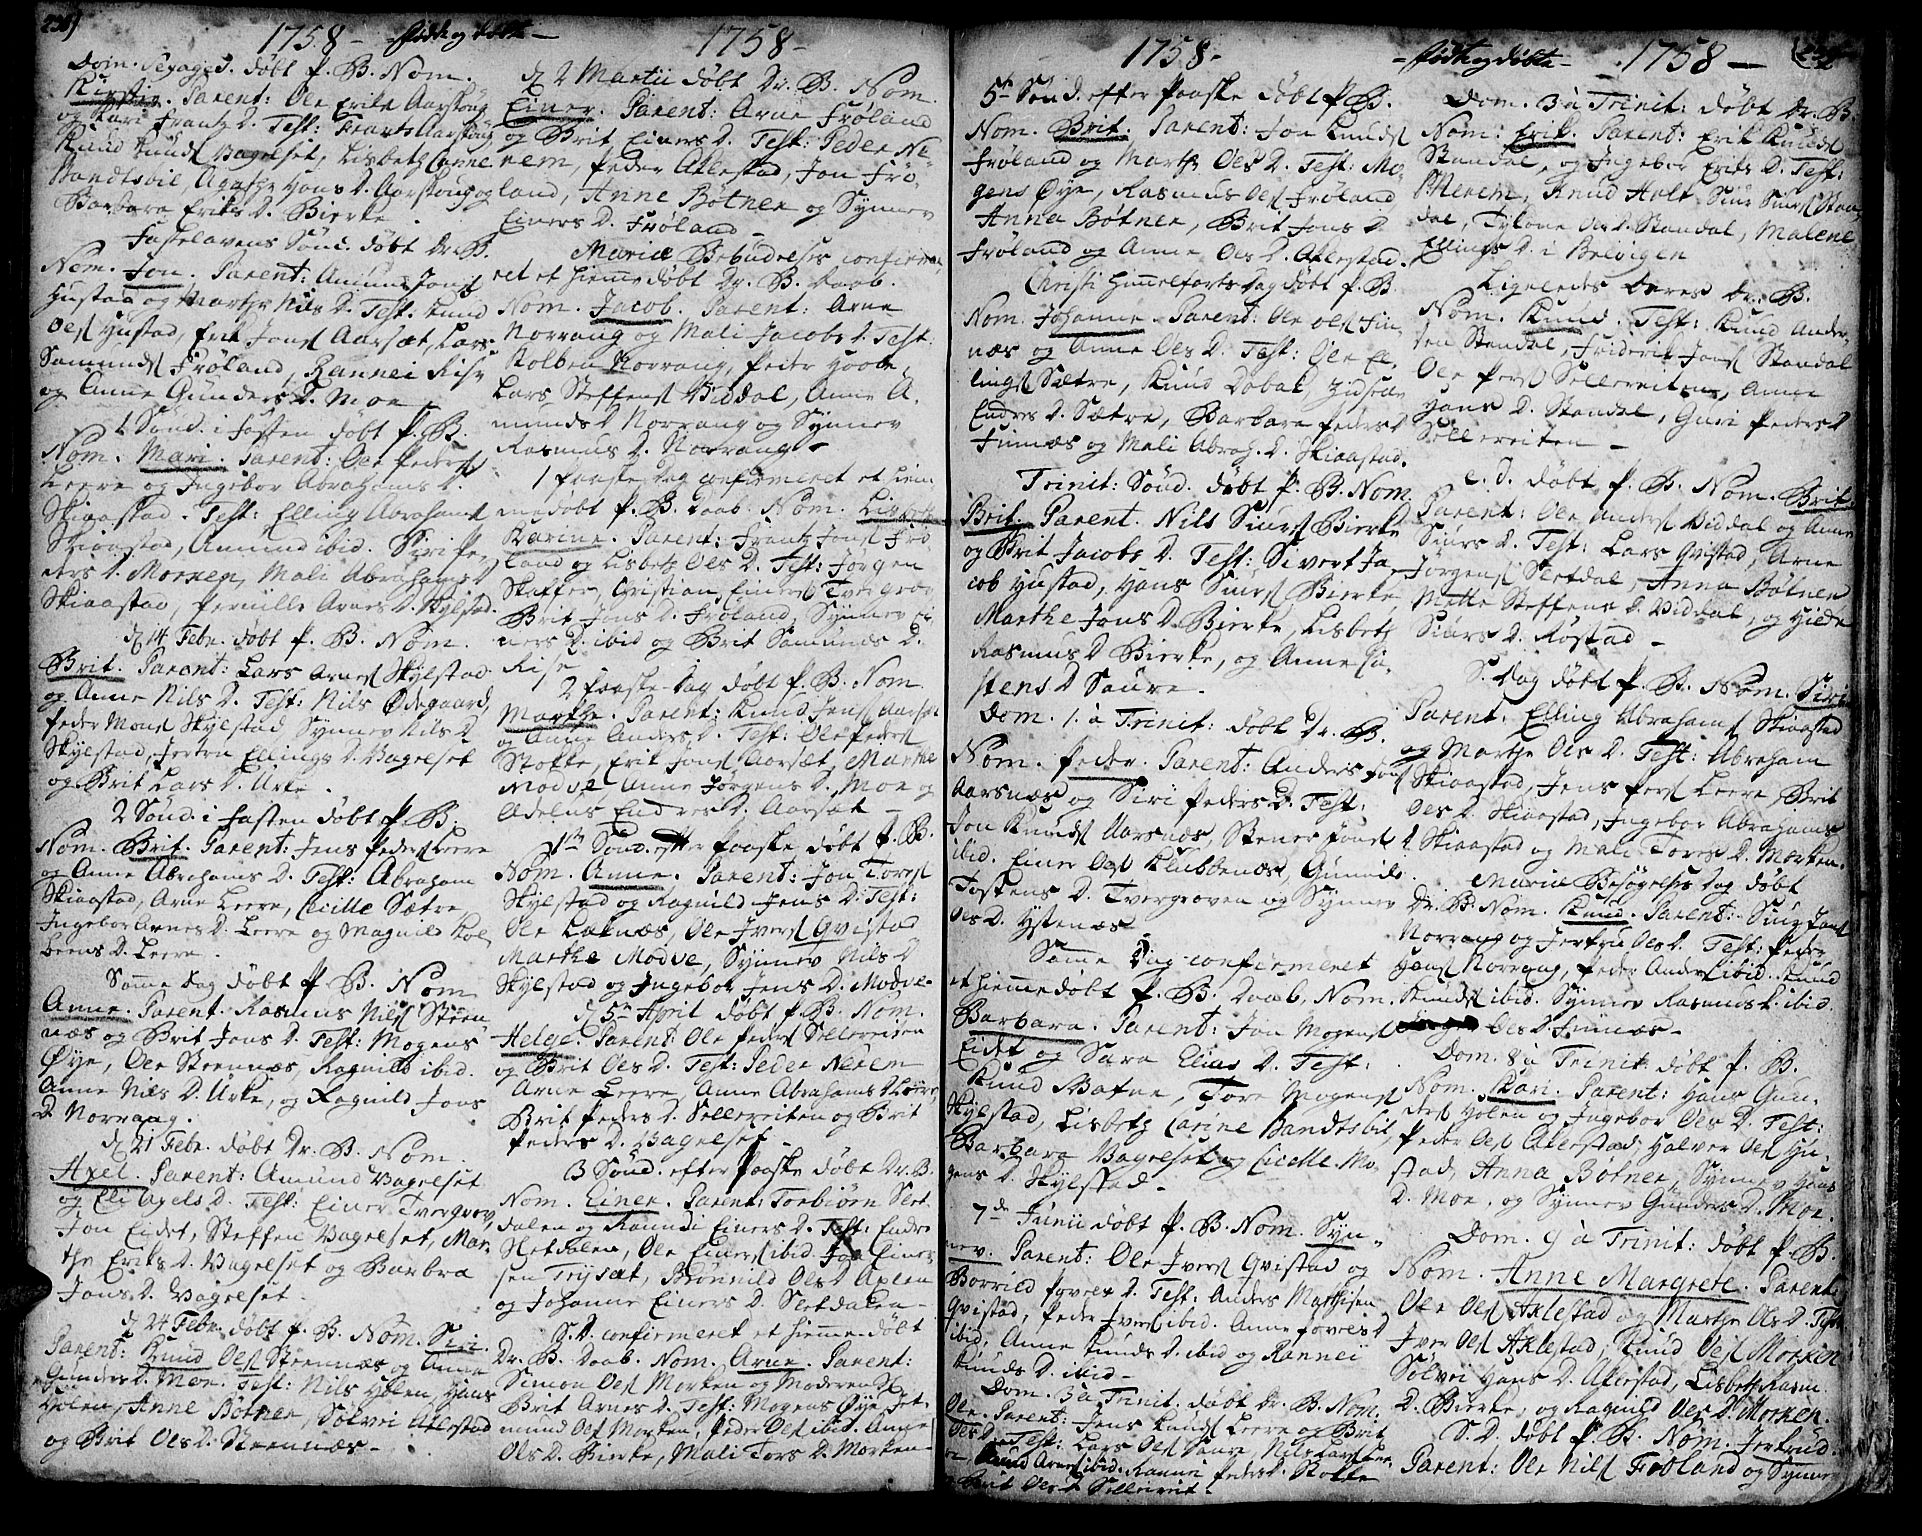 1758 - fødte og døbte -
Dom. Sexages. døbt P. B. Nom.
Kirstin. Parent: Ole Eriks Aarskoug
og Kari Frantz D. Test: Frants Aarskoug
Knud Knuds Vagelset, Lisbeth Carine
Bandtsbil, Agathe Hans D. Aarskoug og
Barbara Eriks D. Bierke.
Fastelavens Sønd. døbt Dr. B.
Nom. Jon. Parent: Amund Jons
Hustad og Marthe Nils D. Test: Knud
Oles Hustad, Erik Jons Aarsæt, Lars
Samunds Frøland, Rannei Rise
og Anne Gunders D. Moe
1 Sønd. i Fasten døbt P. B.
Nom. Mari. Parent: Ole Peders
Leere og Ingebor Abrahams D.
Skiaastad. Test: Elling Abrahams
Skiaastad, Amund ibid. Siri Pe-
ders D. Morken, Mali Abrahams D
Skiaastad, Pernille Arnes D. Skylstad.
d. 14 Febr. døbt P. B. Nom.
Brit. Parent: Lars Arnes Skylstad
og Anne Nils D. Test: Nils Ødegaard,
Peder Mons Skylstad Synnev Nils D
Skylstad, Jorton Ellings D. Vagelset
og Brit Lars D. Urke.
2 Sønd. i Fasten døbt P. B.
Nom. Brit. Parent: Jens Peders Leere
og Anne Abrahams D. Test: Abraham
Skiaastad, Arne Leere, Cecille Sætre
Ingebor Arnes D. Leere og Magnild Kol-
beens D. Leere.
Samme Dag døbt P. B. Nom
Anne. Parent. Rasmus Nils Steen-
næs og Brit Jons D. Test: Mogens
Øye, Ole Steennæs, Ragnild ibid.
Anne Nils D. Urke, og Ragnild Jons
D. Norrang.
d. 21 Febr. døbt Dr. B. Nom.
Axel. Parent: Amund Vagelset
og Eli Axels D. Test: Einer Tvergrov,
Jon Eidet, Steffen Vagelset, Mar-
the Eriks D. Vagelset og Barbra
Jons D. Vagelset.
d. 24 Febr. døbt P. B. Nom. Siri.
Parent: Knud Oles Steennæs og Anne
Gunders D. Moe. Test: Nils Holen, Hans
Holen, Anne Bøtner, Sølvei Aklestad
og Brit Oles D. Steennæs -
1758 -
d. 2 Martii døbt Dr. B. Nom.
Einer. Parent: Arne Frøland
og Brit Einers D. Test: Peder Ne-
rem, Peder Aklestad, Jon Frø-
land, Anne Bøtner og Synnev
Einers D. Frøland -
Mariæ Bebudelses confirme-
ret et hiemmedøbt Dr. B. Daab.
Nom. Jacob. Parent: Arne
Norrang og Mali Jacobs D. Test:
Kolben Norrang, Peder Haabe,
Lars Steffens Viddal, Anne A-
munds D Norrang og Synnev
Rasmus D. Norrang -
1 Paaske Dag confirmeret et hiem-
medøbt P. B. Daab. Nom. Lisbeth
Karine. Parent: Frantz Jons Frø-
land og Lisbeth Oles D. Test: Jørgen
Skaffer, Christian Einers Tvergrov
Brit Jons D. Frøland, Synnev Ei-
ners D. ibid og Brit Samunds D.
Rise
2 Paaske Dag døbt P. B. Nom.
Marthe. Parent: Knud Jens Aarsæt
og Anne Anders D. Test: Ole Peders
Stokke, Erik Jons Aarsæt, Marthe
Modve Anne Jørgens D. Moe og
Adelus Endres D. Aarsæt -
1ste Sønd. efter Paaske døbt P. B.
Nom. Anne. Parent: Jon Tores
Skylstad og Ragnild Jens D. Test:
Ole Loknæs, Ole Ivers Qvistad
Marthe Modve, Synnev Nils D
Skylstad og Ingebor Jens D. Modve -
d. 5te April døbt P. B. Nom.
Helge. Parent: Ole Peders Sellereiten
og Brit Oles D. Test: Peder Nerem
Arne Leere, Anne Abrahams D Leere,
Brit Peders D. Sellereiten og Brit
Peders D. Vagelset -
3 Sønd. efter Paaske døbt Dr. B.
Nom. Einer. Parent: Torbiørn Slet-
dalen og Randi Einers D. Test: Endre
Sletdalen, Ole Einers ibid. Jon Einer-
sen Trysæt, Brønnild Oles D Axlen
og Johanne Einers D. Sletdalen -
S. D. confirmeret et hiemme-døbt
Dr. B. Daab. Nom. Arne. Parent:
Simon Oles Morken og Moderen
Brit Arnes D. Test: Mogens Øye, Set-
mund Oles Morken, Peder Oles ibid. Anne
Oles D. Bierke, Mali Tors D. Morken -
1758 -
5te Sønd. efter Paaske døbt P. B.
Nom. Brit. Parent: Jon Knuds
Frøland og Marthe Oles D. Test: Mo-
gens Øye, Rasmus Oles Frøland
Anna Bøtner, Brit Jons D
Frøland og Anne Oles D. Aklestad.
Christi Himmelfarts Dag døbt P. B
Nom. Johanne. Parent: Ole Oles Fin-
næs og Anne Oles D. Test: Ole El-
lings Sætre, Knud Dabal, Zidsela
Endres D. Sætre, Barbara Peders D
Finnæs og Mali Abrah. D. Skiaastad.
Trinit: Sønd. døbt P. B. Nom.
Brit. Parent. Nils Siurs Bierke
og Brit Jacobs D. Test: Sivert Ja-
cob Hustad, Hans Siurs Bierke,
Marthe Jons D. Bierke, Lisbeth
Rasmus D Bierke, og Anne
stens D Saure -
Dom. 1. à Trinit: døbt Dr. B.
Nom. Peder. Parent: Anders Jons
Aarsnæs og Siri Peders D. Test:
Jon Knuds Aarsnæs, Stener Jons
ibid. Einer Oles Klubbenæs, Gunnild
Tostens D. Tvergroven og Synnev
Oles D. Ystenæs
Samme Dag confirmeret
et hiemmedøbt P. B. Daab, Nom.
Barbara. Parent: Jon Mogens
Eidet og Sara Elias D. Test:
Knud Bafne, Tore Mogens
Skylstad, Lisbeth Carine Bandtsbil,
Barbara Vagelset og Cicelle Mo-
gens D. Skylstad -
7de Junii døbt P. B. Nom. Syn-
nev. Parent: Ole Ivers Qvistad og
Borrild Povels D. Test: Anders Mathisen
Qvistad, Peder Ivers ibid. Anne Povels D
ibid. Anne Knuds D. ibid og Rannei
Knuds D. ibid -
Dom. 3 à Trinit. døbt Dr. B. Nom:
Ole. Parent: Jens Knuds Leere og Brit
Oles D. Test: Lars Oles Saure, Nils Lars Lee-
re, Knud Arnes ibid. Rannei Peders D. Stokke
og Brit Oles D Sellereit -
- fødte og døbte - 1758 -
Dom. 3 à Trinit: døbt Dr. B.
Nom: Erik. Parent: Erik Knuds
Standal, og Ingebor Eriks D. Test:
P. Nerem, Knud Holt Siur Siurs Stan-
dal, Tylone Oles D. Standal, Malene
Ellings D. i Belvigen
Ligeledes deres Dr. B.
Nom. Knud. Test: Knud Ander-
sen Standal, Friderik Jons Standal
Ole Pers Sellereiten, Anne
Hans D. Standal, Guri Peders D
Sellereiten -
e. d. døbt P. B. Nom. Brit
Parent: Ole Anders Viddal og Anne
Siurs D. Test: Lars Qvistad, Arne
Jørgens Sletdal, Anna Bøtner
Mette Steffens D. Viddal, og Hilde
Siurs D. Røstad -
S. Dag døbt P. B. Nom. Siri
Parent. Elling Abrahams Skiaastad
og Marthe Oles D. Test: Abraham
Skiaastad, Jens Pers Leere Brit
Oles D. Skiaastad, Ingebor Abrahams
D Skiaastad og Mali Tores D. Morken.
Mariæ Besøgelses Dag døbt
Dr. B. Nom. Knud. Parent: Siur Jons
Norrang og Jertru Oles D. Test: Peder
Hans Norrang, Peder Anders ibid. Knud
Knuds ibid. Synnev Rasmus D. ibid.
Oles D Finnæs -
Dom. 8 à Trinit døbt P. B.
Nom. Kari. Parent: Hans Gun-
ders Holen og Ingebor Oles D. Test:
Peder Oles Aklestad, Halver Oles Hu-
stad, Anna Bøtner, Synnev Hans
D. Moe, og Synnev Gunders D. Moe.
Dom. 9 à Trinit: døbt P. B.
Nom. Anne Margrete. Parent
Ole Oles Axlestad og Marthe Oles D. Test
Iver Oles Axlestad, Knud Oles Morken
Sølvei Hans D. Aklestad, Lisbeth Rasm.
D. Bierke, og Ragnild Oles D. Morken.
S. D. døbt P. B. Nom. Jertrud.
Parent: Ole Nils Frøland og Synnev